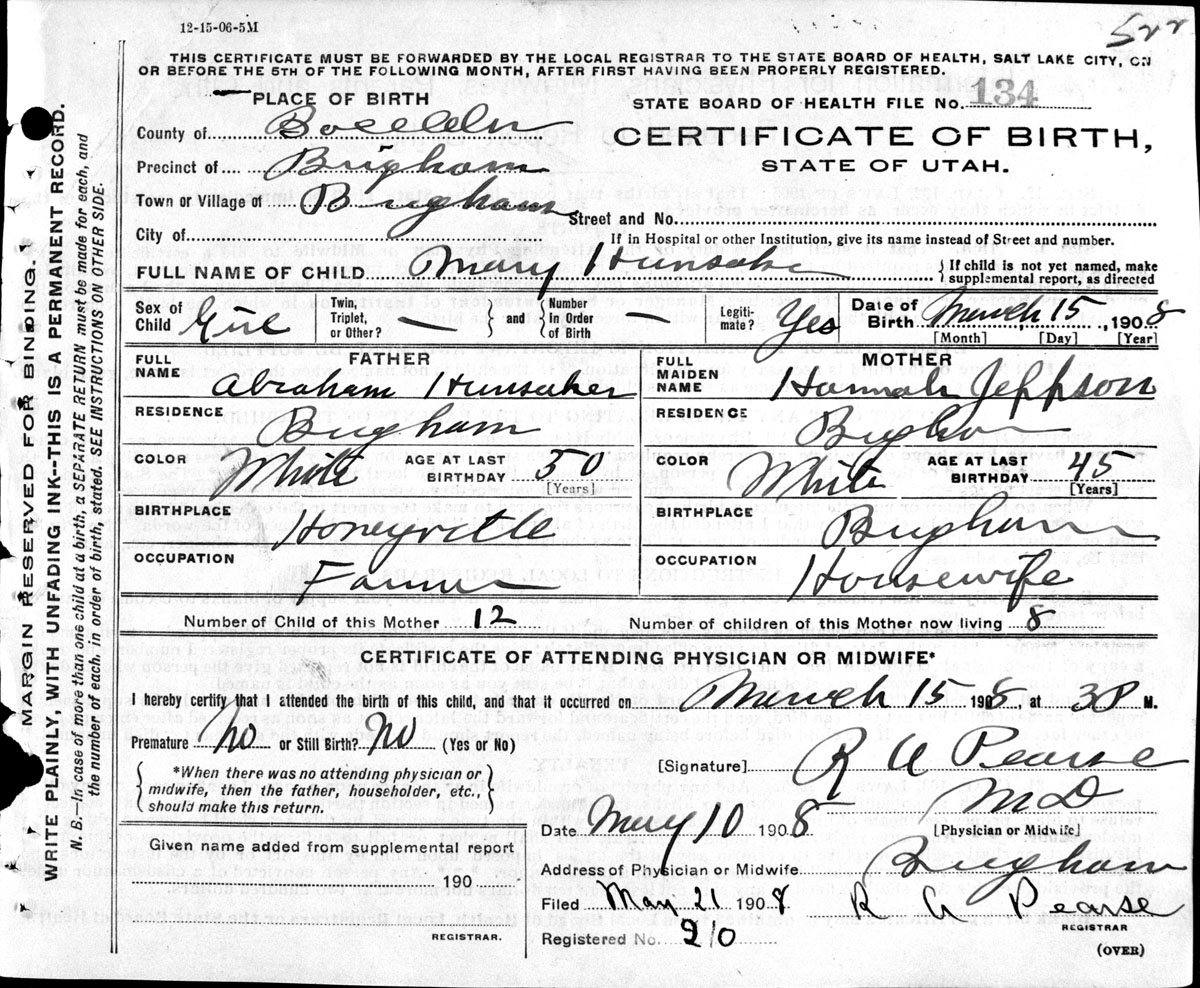 12-15-06-5M
522
THIS CERTIFICATE MUST BE FORWARDED BY THE LOCAL REGISTRAR TO THE STATE BOARD OF HEALTH, SALT LAKE CITY, ON
OR BEFORE THE 5TH OF THE FOLLOWING MONTH, AFTER FIRST HAVING BEEN PROPERLY REGISTERED.
PLACE OF BIRTH
STATE BOARD OF HEALTH FILE NO. 134
County of Boxelder
CERTIFICATE OF BIRTH,
Precinct of Brigham
STATE OF UTAH.
Town or Village of Brigham Street and No.
City of If in Hospital or other Institution, give its name instead of Street and number.
FULL NAME OF CHILD Mary Hunsake { If child is not yet named, make
supplemental report, as directed
Sex of Child Girl Twin, Triplet, or Other? — { and } Number in Order of Birth — Legiti-mate? Yes Date of Birth March 15, 1908
[Month] [Day] [Year]
FULL NAME FATHER Abraham Hunsaker
FULL MAIDEN NAME MOTHER Hannah Jeppson
RESIDENCE Brigham
RESIDENCE Brigham
COLOR White AGE AT LAST BIRTHDAY 50 [Years]
COLOR White AGE AT LAST BIRTHDAY 45 [Years]
BIRTHPLACE Honeyville
BIRTHPLACE Brigham
OCCUPATION Farmer
OCCUPATION Housewife
Number of Child of this Mother 12 Number of children of this Mother now living 8
CERTIFICATE OF ATTENDING PHYSICIAN OR MIDWIFE*
I hereby certify that I attended the birth of this child, and that it occurred on March 15 1908, at 3 P M.
Premature? No or Still Birth? No (Yes or No)
[Signature] R A Pearse
MD
[Physician or Midwife]
*When there was no attending physician or
midwife, then the father, householder, etc.,
should make this return.
Date May 10 1908
Given name added from supplemental report
190
REGISTRAR.
Address of Physician or Midwife Brigham
Filed May 21 1908 R A Pearse
REGISTRAR
Registered No. 210
(OVER)
MARGIN RESERVED FOR BINDING.
WRITE PLAINLY, WITH UNFADING INK--THIS IS A PERMANENT RECORD.
N. B.—In case of more than one child at a birth, a SEPARATE RETURN must be made for each, and
the number of each, in order of birth, stated. SEE INSTRUCTIONS ON OTHER SIDE.